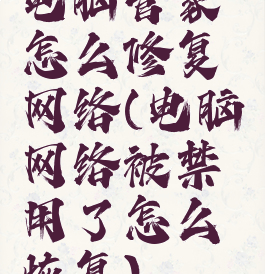 电脑管家
怎么修复
网络(电脑
网络被禁
用了怎么
恢复)